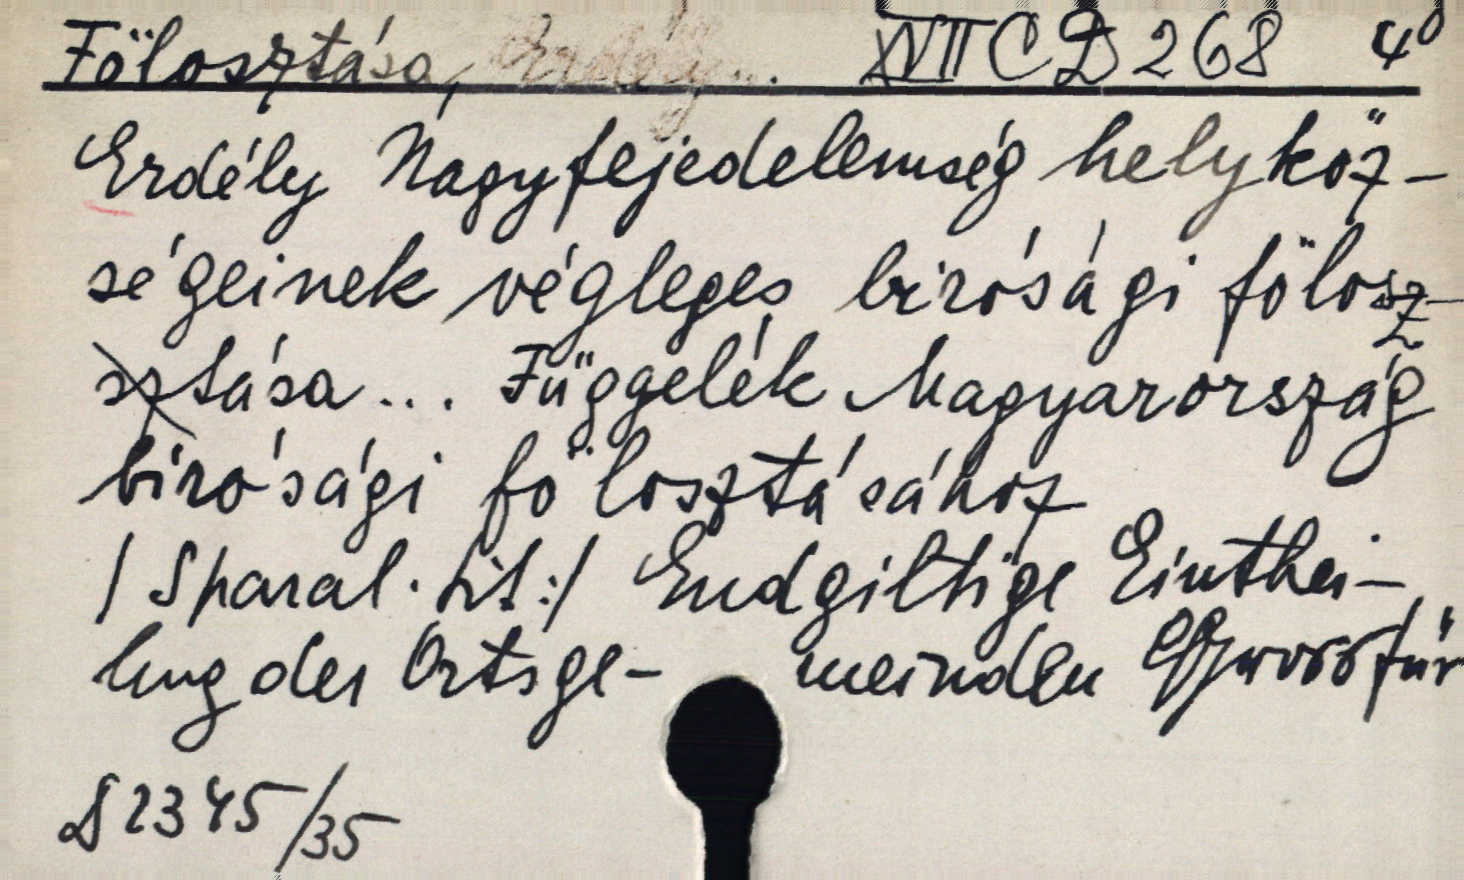 Fölosztása, Erdély... XVII C D 268 4°
Erdély Nagyfejedelemség helyköz-
ségeinek végleges birósági fölosz-
tása ... Függelék Magyarország
birósági fölosztásához
/Sparal. tit:/ Endgiltige Einthei-
lung der Ortsge- meinden Grossfür
D 2345/35